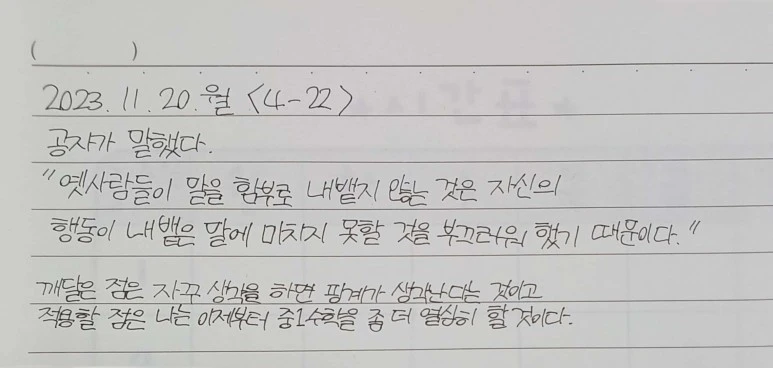 (          )
2023. 11. 20. 월 <4-22>
공자가 말했다.
"옛사람들이 말을 함부로 내뱉지 않는 것은 자신의
행동이 내뱉은 말에 미치지 못할 것을 부끄러워 했기 때문이다."
깨달은 점은 자꾸 생각을 하면 핑계가 생각난다는 것이고
적용할 점은 나는 이제부터 중1수학을 좀 더 열심히 할 것이다.